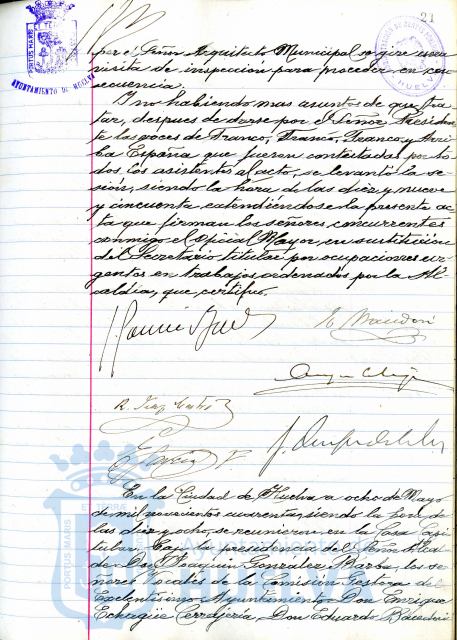 21
PORTUS MARIS
AYUNTAMIENTO DE HUELVA
HUELVA
por el Señor Arquitecto Municipal se gire una
visita de inspección para proceder en con
secuencia.
Y no habiendo mas asuntos de que tra
tar, despues de darse por el Señor Presiden
te las voces de Franco, Franco, Franco, y Arri
ba España que fueron contestadas por to
dos los asistentes al acto, se levantó la se
sión, siendo la hora de las diez y nueve
y cincuenta extendiéndose la presente ac
ta que firman los señores concurrentes
conmigo el Oficial Mayor, en sustitución
del Secretario titular por ocupaciones ur
gentes en trabajos ordenados por la Al
caldía, que certifico.
En la Ciudad de Huelva a ocho de Mayo
de mil novecientos cuarenta, siendo la hora de
las diez y ocho, se reunieron en la Casa Capi
tular, bajo la presidencia del Señor Alcal
de Don Joaquín González Barba, los se
ñores Vocales de la Comisión Gestora del
Excelentísimo Ayuntamiento Don Enrique
Echagüe Cerrejería, Don Eduardo
PORTUS MARIS
Ayuntamiento de